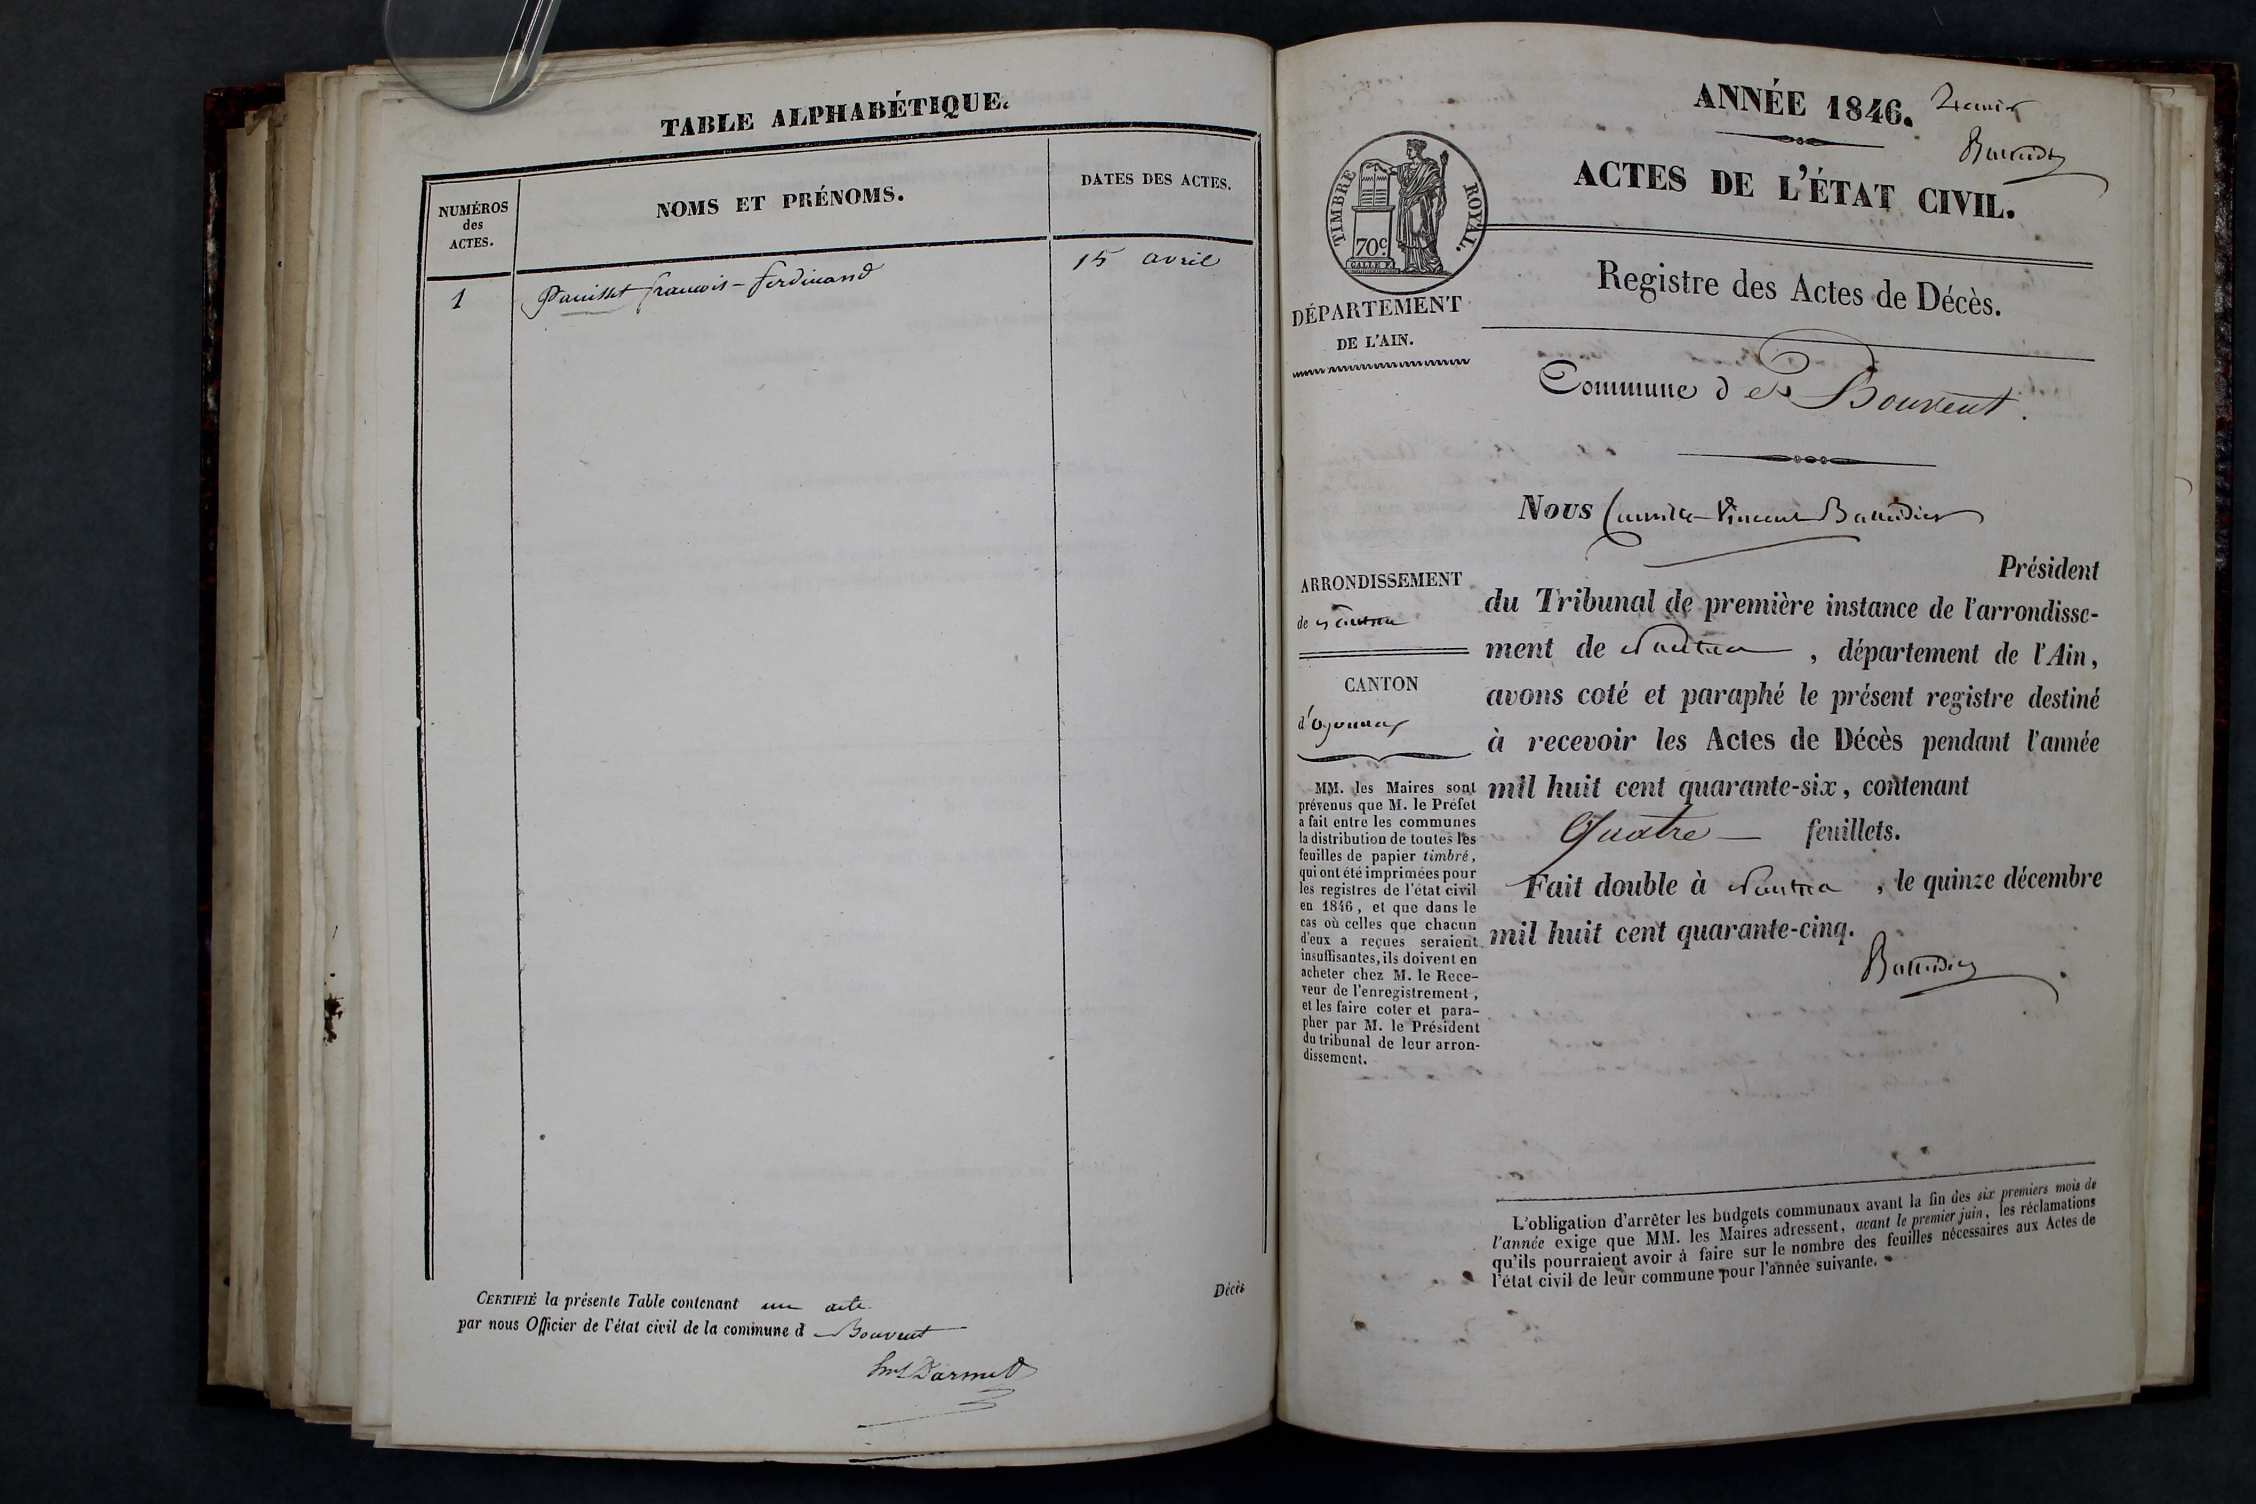 TABLE ALPHABÉTIQUE.
NUMÉROS
des
ACTES.
NOMS ET PRÉNOMS.
DATES DES ACTES.
1 françois-ferdinand 15 avril
CERTIFIÉ la présente Table contenant un acte
par nous Officier de l'état civil de la commune d Bouvent
Darmet
Décès
ANNÉE 1846.
ACTES DE L'ÉTAT CIVIL.
TIMBRE ROYAL.
70c
Registre des Actes de Décès.
DÉPARTEMENT
DE L'AIN.
Commune de Bouvent.
Nous Camille Vincent Baudier
Président
ARRONDISSEMENT
de Nantua
CANTON
d'oyonnax
MM. les Maires sont
prévenus que M. le Préfet
a fait entre les communes
la distribution de toutes les
feuilles de papier timbré,
qui ont été imprimées pour
les registres de l'état civil
en 1846, et que dans le
cas où celles que chacun
d'eux a reçues seraient
insuffisantes, ils doivent en
acheter chez M. le Rece-
veur de l'enregistrement,
et les faire coter et para-
pher par M. le Président
du tribunal de leur arron-
dissement.
du Tribunal de première instance de l'arrondisse-
ment de Nantua, département de l'Ain,
avons coté et paraphé le présent registre destiné
à recevoir les Actes de Décès pendant l'année
mil huit cent quarante-six, contenant
Quatre feuillets.
Fait double à Nantua, le quinze décembre
mil huit cent quarante-cinq.
L'obligation d'arrêter les budgets communaux avant la fin des six premiers mois de
l'année exige que MM. les Maires adressent, avant le premier juin, les réclamations
qu'ils pourraient avoir à faire sur le nombre des feuilles nécessaires aux Actes de
l'état civil de leur commune pour l'année suivante.